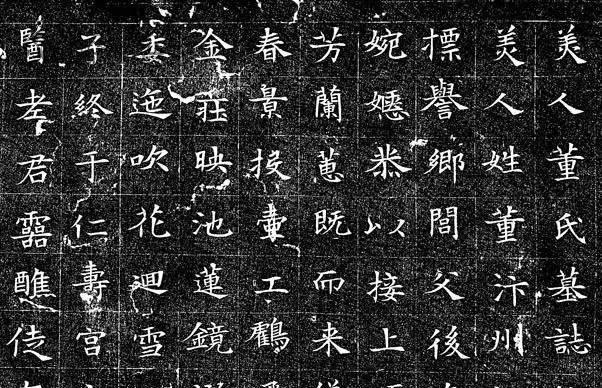 美人董氏墓誌
美人姓董汴州
摽譽鄉閭父後
婉嫕恭以接上
芳蘭蕙既而来
春景投壷工鸖
金莊映池蓮鏡
委迤吹花迴雪
子終于仁壽宮
醫老君靈醮徒